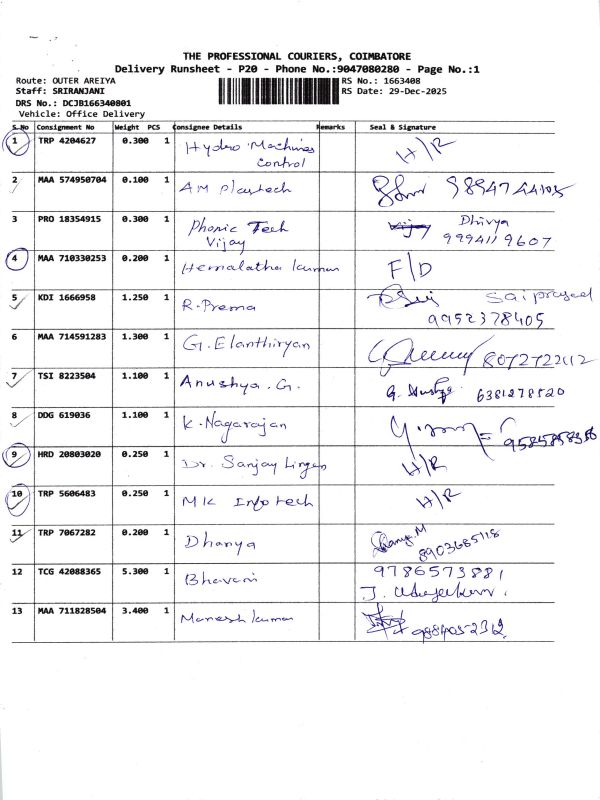 THE PROFESSIONAL COURIERS, COIMBATORE
Delivery Runsheet - P20 - Phone No.:9047080280 - Page No.:1
Route: OUTER AREIYA RS No.: 1663408
Staff: SRIRANJANI RS Date: 29-Dec-2025
DRS No.: DCJB166340801
Vehicle: Office Delivery
S.No Consignment No Weight PCS Consignee Details Remarks Seal & Signature
1 TRP 4204627 0.300 1 Hydro Machines H/R
Control
2 MAA 574950704 0.100 1 AM Plastech
3 PRO 18354915 0.300 1 Phonic Tech Vijay Dhivya
Vijay 9994119607
4 MAA 710330253 0.200 1 Hemalatha kumar F/D
5 KDI 1666958 1.250 1 R. Prema
9952378405
6 MAA 714591283 1.300 1 G. Elanthiryan 8072722112
7 TSI 8223504 1.100 1 Anushya. G. 6381278520
8 DDG 619036 1.100 1 K. Nagarajan
9 HRD 20803020 0.250 1 Dr. Sanjay Lingan H/R
10 TRP 5606483 0.250 1 MK Infotech H/R
11 TRP 7067282 0.200 1 Dhanya
8903685118
12 TCG 42088365 5.300 1 Bhavani 9786573881
13 MAA 711828504 3.400 1 Manesh kumar